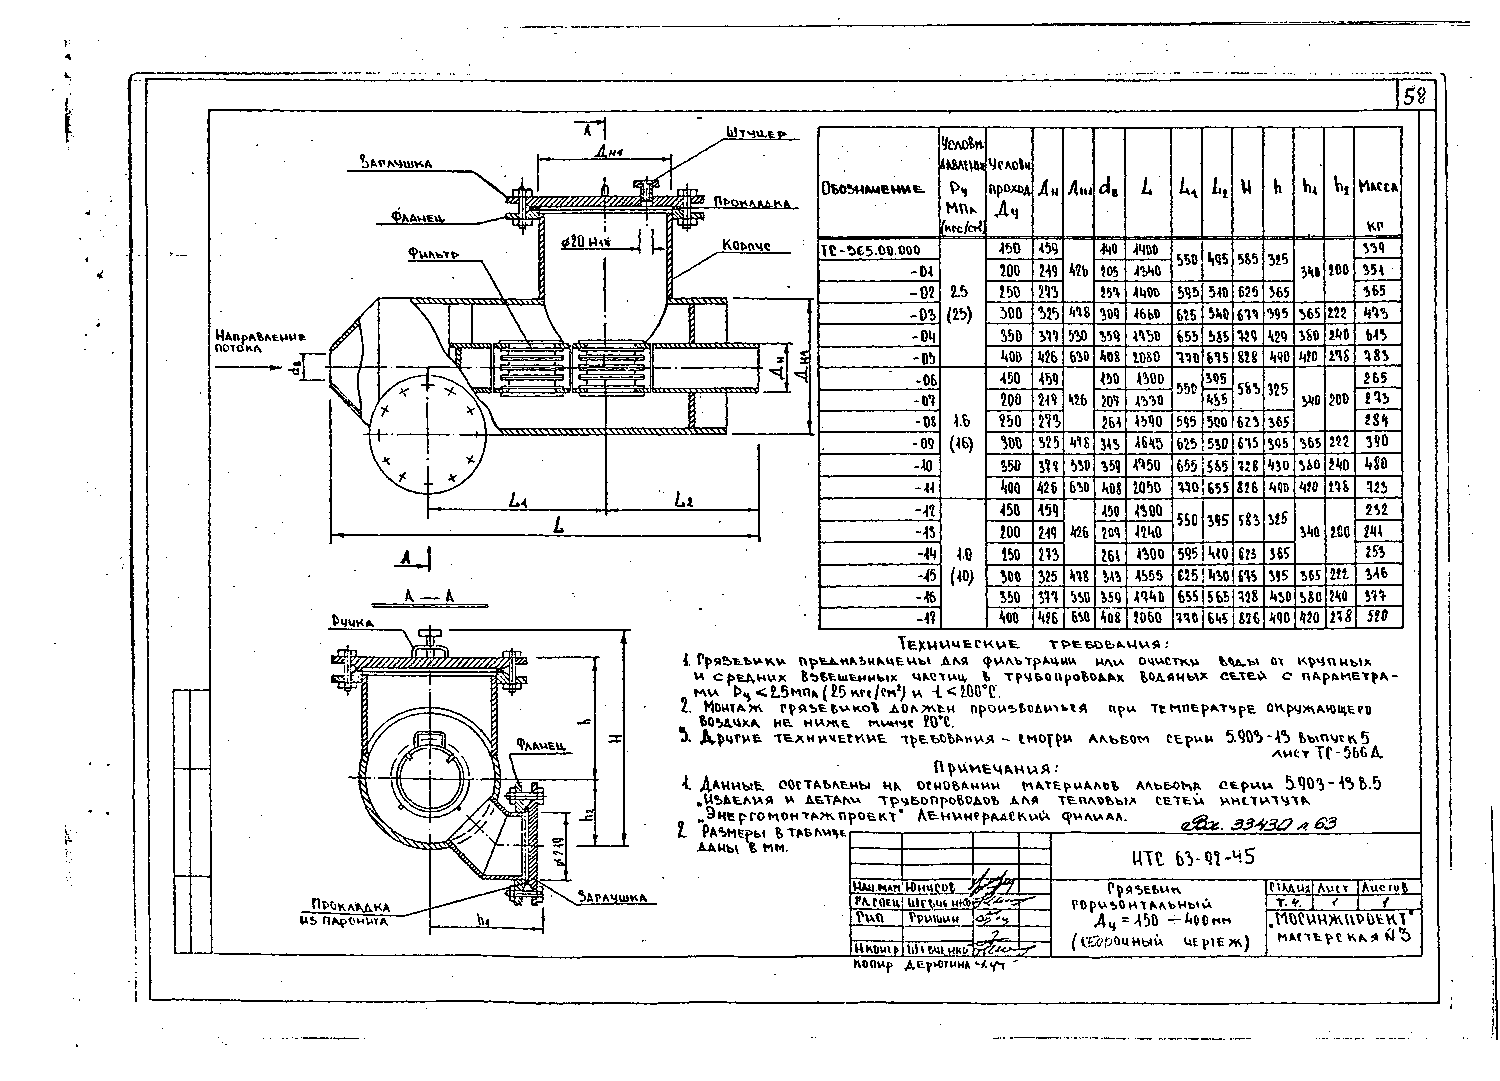 58
А
Штуцер
Дн1
Заглушка
Фланец
Прокладка
ф20 Н14
Корпус
Фильтр
Направление
потока
dв
Дн
Дн1
L1
L2
L
А
А — А
Ручка
h
H
Фланец
h2
ф219
Заглушка
Прокладка
из паронита
h1
Обозначение | Условн. давление Ру МПа (кгс/см²) | Условн. проход Ду | Дн | Дн1 | dв | L | L1 | L2 | H | h | h1 | h2 | Масса кг
ТС-565.00.000 | 2.5 (25) | 150 | 159 | 426 | 140 | 1400 | 550 | 495 | 585 | 325 | 340 | 200 | 339
-01 | 200 | 219 | 205 | 1340 | 351
-02 | 250 | 273 | 257 | 1400 | 595 | 510 | 625 | 365 | 365
-03 | 300 | 325 | 478 | 309 | 1660 | 625 | 540 | 677 | 395 | 365 | 222 | 473
-04 | 350 | 377 | 530 | 359 | 1750 | 655 | 585 | 729 | 429 | 380 | 240 | 613
-05 | 400 | 426 | 630 | 408 | 2080 | 770 | 675 | 828 | 490 | 420 | 278 | 783
-06 | 1.6 (16) | 150 | 159 | 426 | 150 | 1300 | 550 | 395 | 583 | 325 | 340 | 200 | 265
-07 | 200 | 219 | 207 | 1330 | 455 | 273
-08 | 250 | 273 | 261 | 1390 | 595 | 500 | 623 | 365 | 284
-09 | 300 | 325 | 478 | 313 | 1645 | 625 | 530 | 675 | 395 | 365 | 222 | 390
-10 | 350 | 377 | 530 | 359 | 1750 | 655 | 585 | 728 | 430 | 380 | 240 | 480
-11 | 400 | 426 | 630 | 408 | 2050 | 770 | 655 | 826 | 490 | 420 | 278 | 723
-12 | 1.0 (10) | 150 | 159 | 426 | 150 | 1300 | 550 | 395 | 583 | 325 | 340 | 200 | 232
-13 | 200 | 219 | 209 | 1240 | 241
-14 | 250 | 273 | 261 | 1300 | 595 | 410 | 623 | 365 | 253
-15 | 300 | 325 | 478 | 313 | 1555 | 625 | 430 | 675 | 395 | 365 | 222 | 316
-16 | 350 | 377 | 530 | 359 | 1740 | 655 | 565 | 728 | 430 | 380 | 240 | 377
-17 | 400 | 426 | 630 | 408 | 2060 | 770 | 645 | 826 | 490 | 420 | 278 | 520
Технические требования:
1. Грязевики предназначены для фильтрации или очистки воды от крупных
и средних взвешенных частиц в трубопроводах водяных сетей с параметра-
ми Ру ≤ 2.5 МПа (25 кгс/см²) и t ≤ 200°С.
2. Монтаж грязевиков должен производиться при температуре окружающего
воздуха не ниже минус 20°С.
3. Другие технические требования – смотри альбом серии 5.903-13 выпуск 5
лист ТС-566Д
Примечания:
1. Данные составлены на основании материалов альбома серии 5.903-13 в.5
„Изделия и детали трубопроводов для тепловых сетей института
„Энергомонтажпроект" Ленинградский филиал.
2. Размеры в таблице
даны в мм.
Вх. 33430 л 63
НТС 63-92-45
Нач.мап Юнусов
Гл.спец Шевченко
Гип Гришин
Н.контр Шевченко
Грязевик
горизонтальный
Ду = 150 ÷ 400 мм
(сборочный чертеж)
Стадия Лист Листов
Т.ч. 1 1
„Мосинжпроект"
мастерская N3
Копир Дерюгина